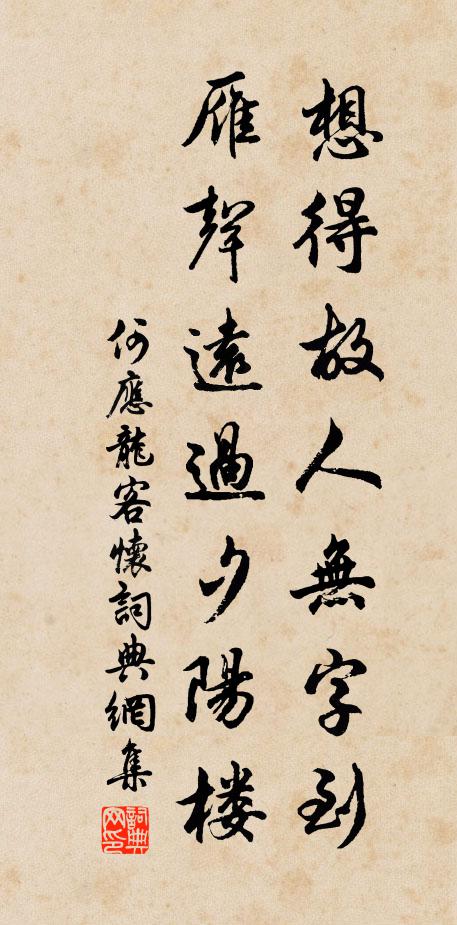 想得故人無字到
雁聲遠過夕陽楼
何應龍客懷詞典網集
詞典网印